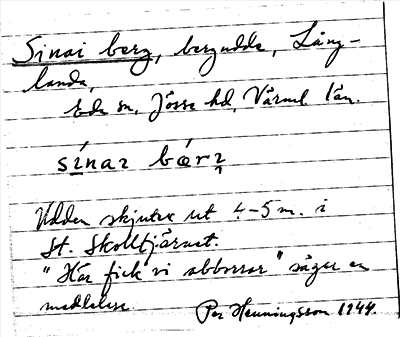 Sinai berg, bergudde, Lång-
landa,
Eda sn, Jösse hd, Värml. län.
sínaɪ bærɪ̭
Udden skjuter ut 4-5 m. i
St. Skolltjärnet.
"Här fick vi abborrar" säger en
meddelare.
Per Henningsson 1944.